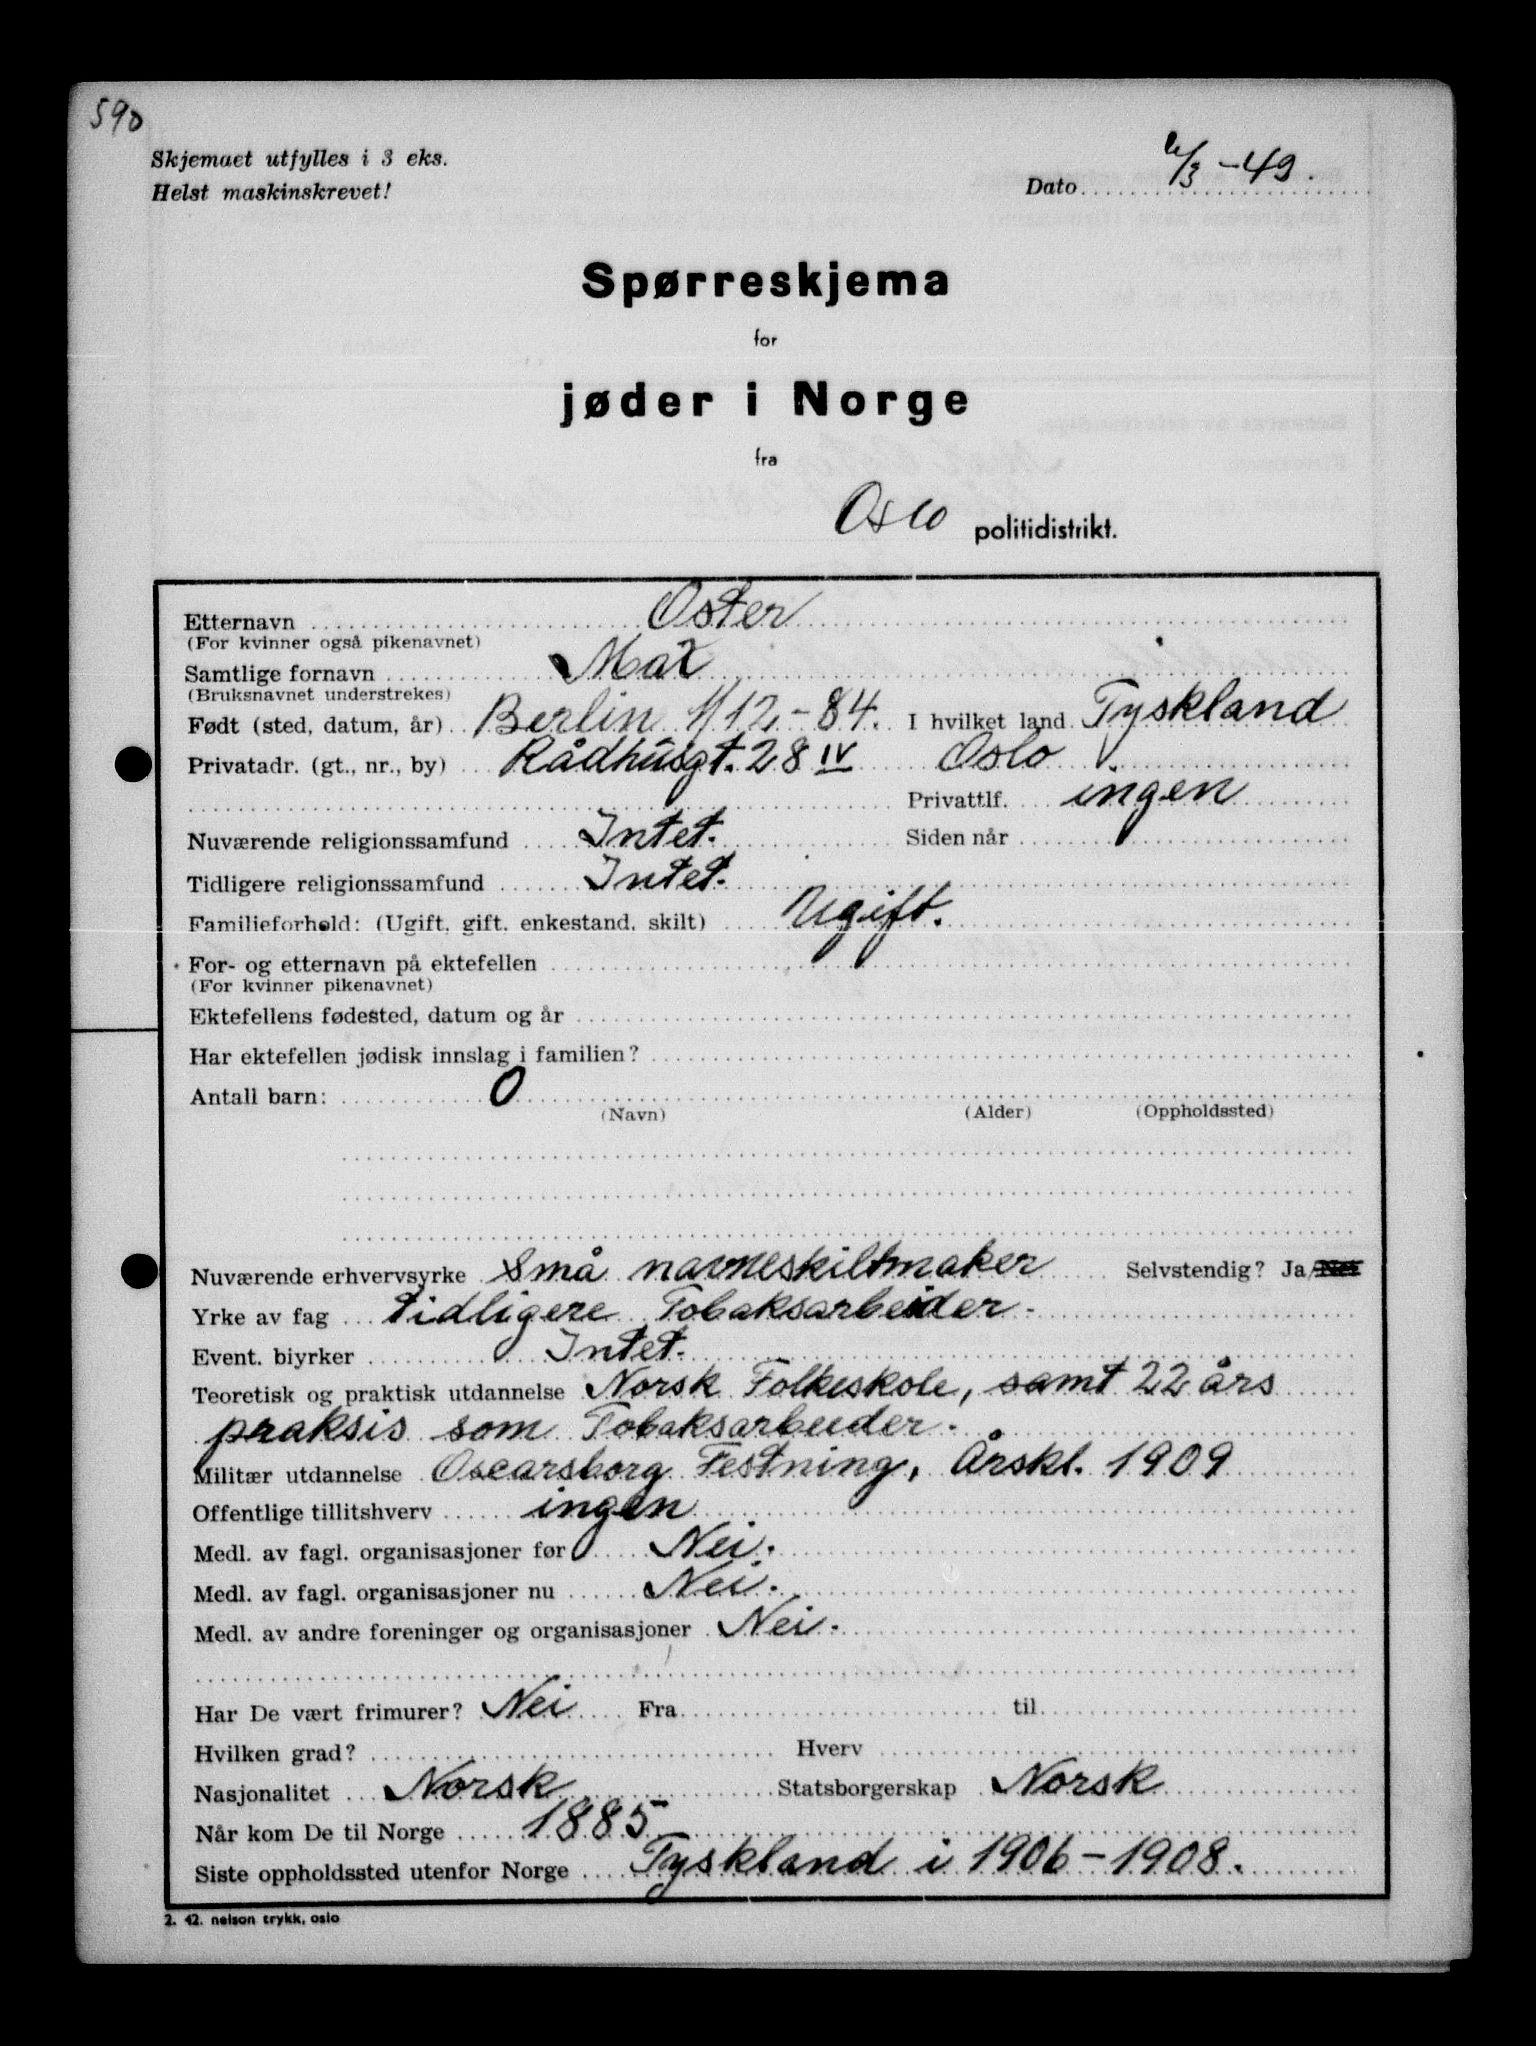 590
Skjemaet utfylles i 3 eks.
Helst maskinskrevet!
Dato /3 - 49.
Spørreskjema
for
jøder i Norge
fra
Oslo politidistrikt.
Etternavn Oster
(For kvinner også pikenavnet)
Samtlige fornavn Max
(Bruksnavnet understrekes)
Født (sted, datum, år) Berlin 1/12 - 84. I hvilket land Tyskland
Privatadr. (gt., nr., by) Rådhusgt. 28 IV Oslo
Privattlf. ingen
Nuværende religionssamfund Intet. Siden når
Tidligere religionssamfund Intet.
Familieforhold: (Ugift, gift, enkestand, skilt) Ugift.
For- og etternavn på ektefellen
(For kvinner pikenavnet)
Ektefellens fødested, datum og år
Har ektefellen jødisk innslag i familien?
Antall barn: 0
(Navn) (Alder) (Oppholdssted)
Nuværende erhvervsyrke Små navneskiltmaker Selvstendig? Ja/Nei
Yrke av fag tidligere Tobaksarbeider.
Event. biyrker Intet.
Teoretisk og praktisk utdannelse Norsk Folkeskole, samt 22 års
praksis som Tobaksarbeider.
Militær utdannelse Oscarsborg Festning, Årskl. 1909
Offentlige tillitshverv ingen
Medl. av fagl. organisasjoner før Nei.
Medl. av fagl. organisasjoner nu Nei.
Medl. av andre foreninger og organisasjoner Nei.
Har De vært frimurer? Nei Fra til
Hvilken grad? Hverv
Nasjonalitet Norsk Statsborgerskap Norsk
Når kom De til Norge 1885
Siste oppholdssted utenfor Norge Tyskland i 1906-1908.
2. 42. nelson trykk, oslo